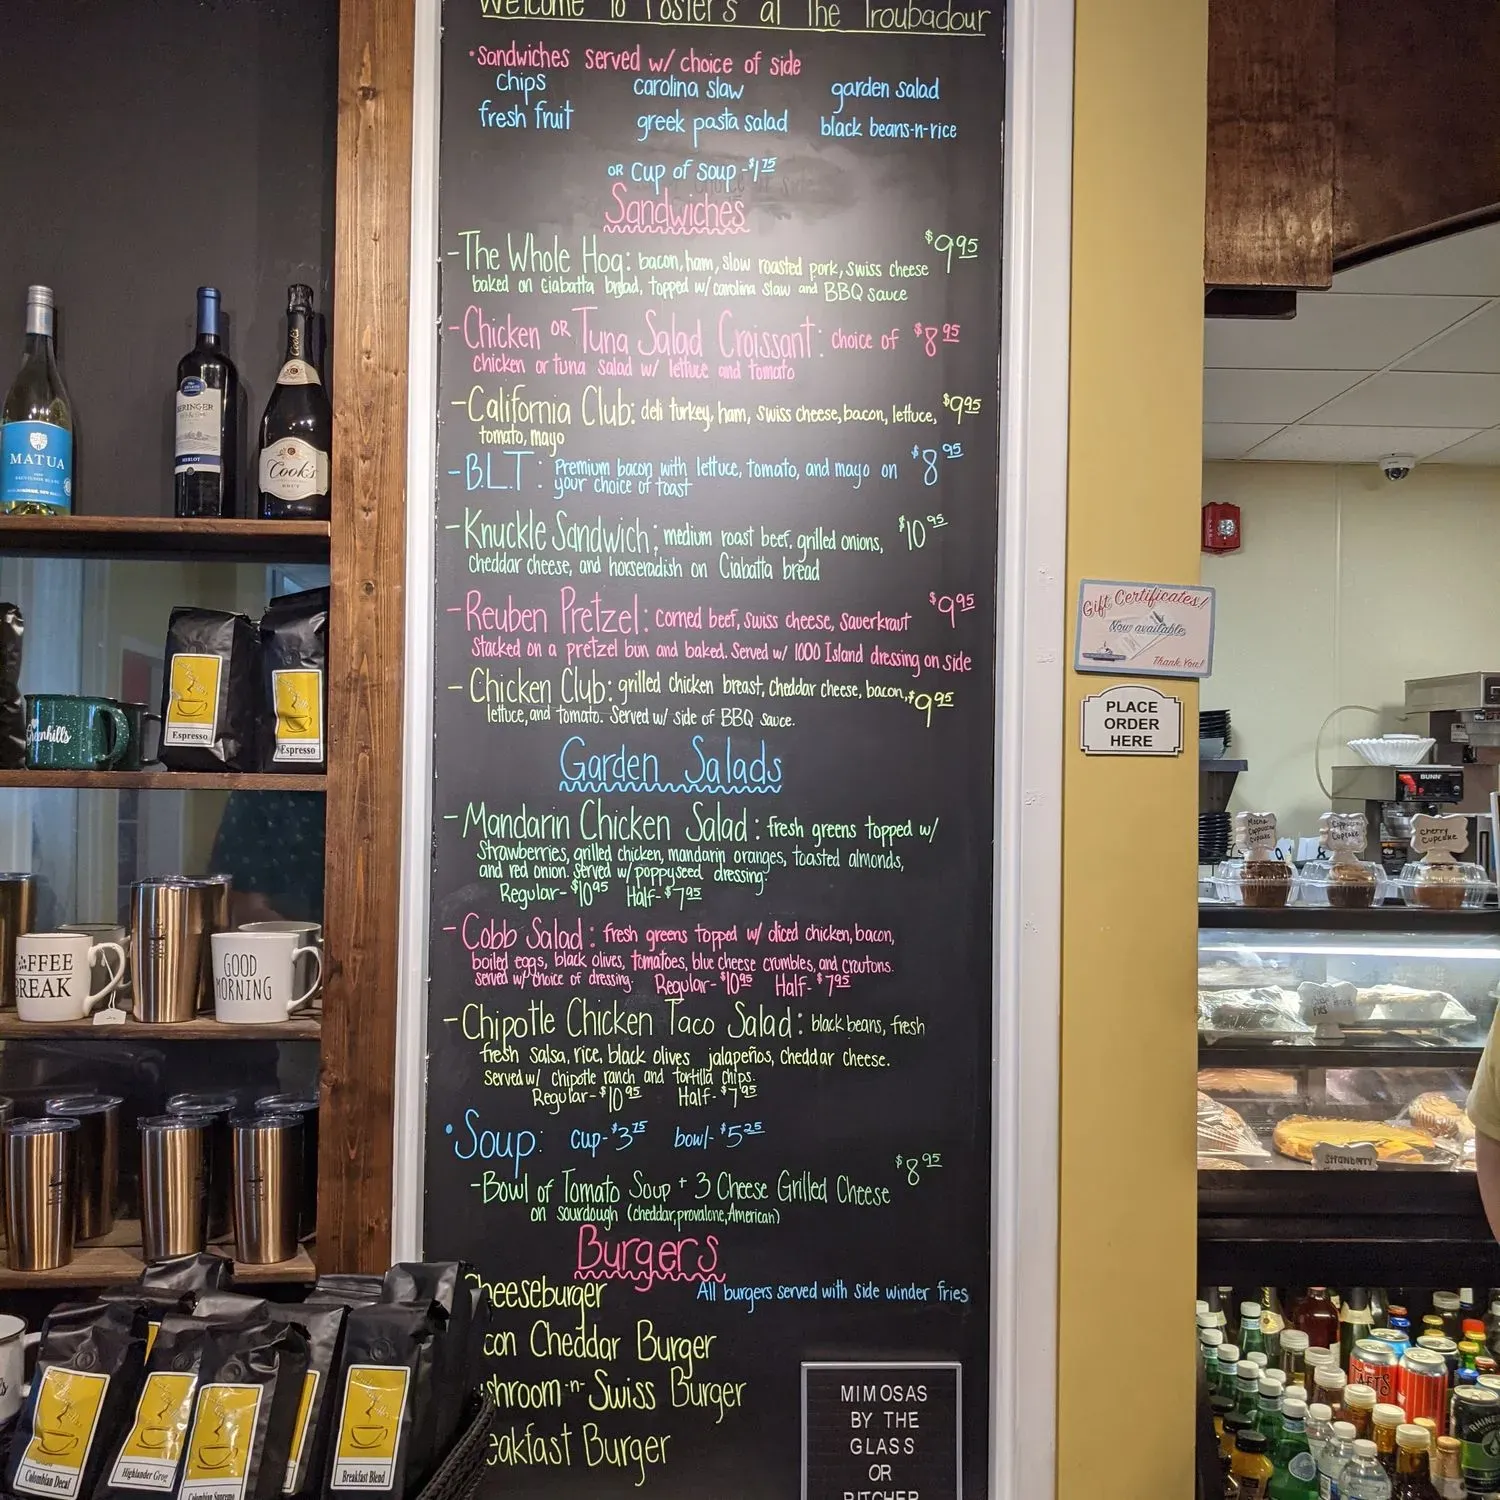 Welcome To Foster's at The Troubadour
•Sandwiches served w/ choice of side
chips carolina slaw garden salad
fresh fruit greek pasta salad black beans-n-rice
OR cup of soup -$1.75
Sandwiches
-The Whole Hog: bacon, ham, slow roasted pork, swiss cheese $9.95
baked on ciabatta bread, topped w/ carolina slaw and BBQ sauce
-Chicken OR Tuna Salad Croissant: choice of $8.95
chicken or tuna salad w/ lettuce and tomato
-California Club: deli turkey, ham, swiss cheese, bacon, lettuce, $9.95
tomato, mayo
-B.L.T: Premium bacon with lettuce, tomato, and mayo on $8.95
your choice of toast
-Knuckle Sandwich: medium roast beef, grilled onions, $10.95
cheddar cheese, and horseradish on Ciabatta bread
-Reuben Pretzel: corned beef, swiss cheese, sauerkraut $9.95
Stacked on a pretzel bun and baked. Served w/ 1000 Island dressing on side
-Chicken Club: grilled chicken breast, cheddar cheese, bacon, $9.95
lettuce, and tomato. Served w/ side of BBQ sauce.
Garden Salads
-Mandarin Chicken Salad: fresh greens topped w/
Strawberries, grilled chicken, mandarin oranges, toasted almonds,
and red onion. served w/ poppyseed dressing.
Regular- $10.95 Half- $7.95
-Cobb Salad: fresh greens topped w/ diced chicken, bacon,
boiled eggs, black olives, tomatoes, blue cheese crumbles, and croutons.
served w/ choice of dressing. Regular- $10.95 Half- $7.95
-Chipotle Chicken Taco Salad: black beans, fresh
fresh salsa, rice, black olives jalapeños, cheddar cheese.
Served w/ chipotle ranch and tortilla chips.
Regular- $10.95 Half- $7.95
•Soup: cup- $3.75 bowl- $5.25
-Bowl of Tomato Soup + 3 Cheese Grilled Cheese $8.95
on sourdough (cheddar, provalone, American)
Burgers
Cheeseburger All burgers served with side winder fries
con Cheddar Burger
shroom-n-Swiss Burger
eakfast Burger
MIMOSAS
BY THE
GLASS
OR
PITCHER
Gift Certificates!
Now available
Thank You!
PLACE
ORDER
HERE
BUNN
Mocha
Cappuccino
Cupcake
Cappuccino
Cupcake
cherry
cupcake
MATUA
SAUVIGNON BLANC
BERINGER
MERLOT
Cook's
BRUT
Greenhills
Espresso
Espresso
COFFEE
BREAK
GOOD
MORNING
Colombian Decaf
Highlander Grog
Colombian Supremo
Breakfast Blend